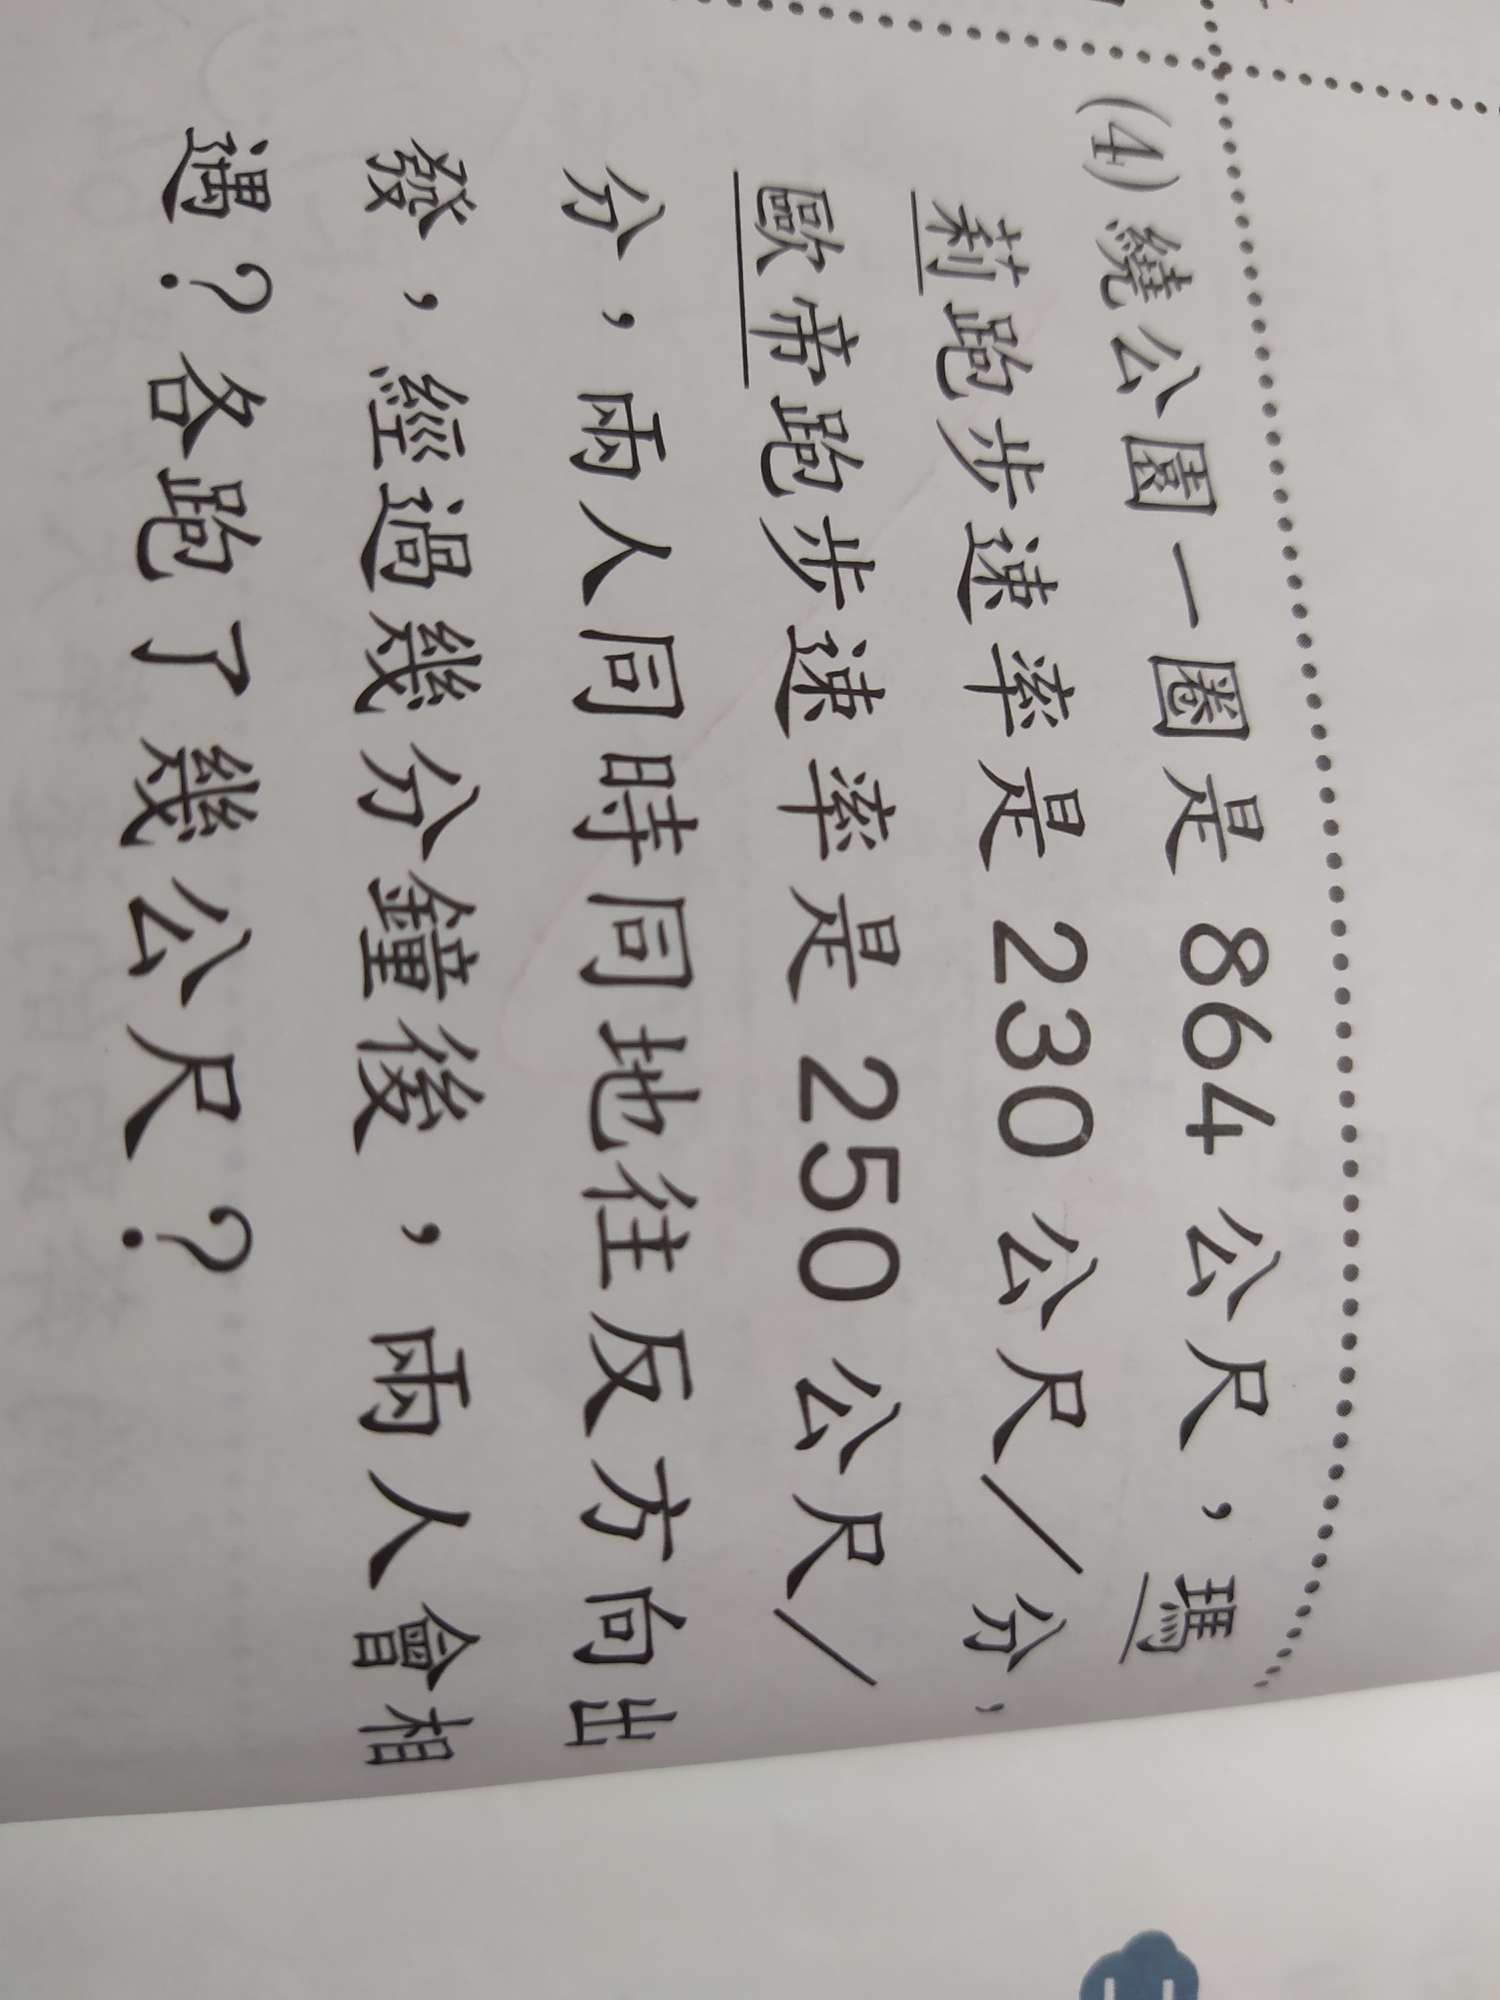 (4) 繞公園一圈是 864 公尺，瑪
莉跑步速率是 230 公尺／分，
歐帝跑步速率是 250 公尺／
分，兩人同時同地往反方向出
發，經過幾分鐘後，兩人會相
遇？各跑了幾公尺？